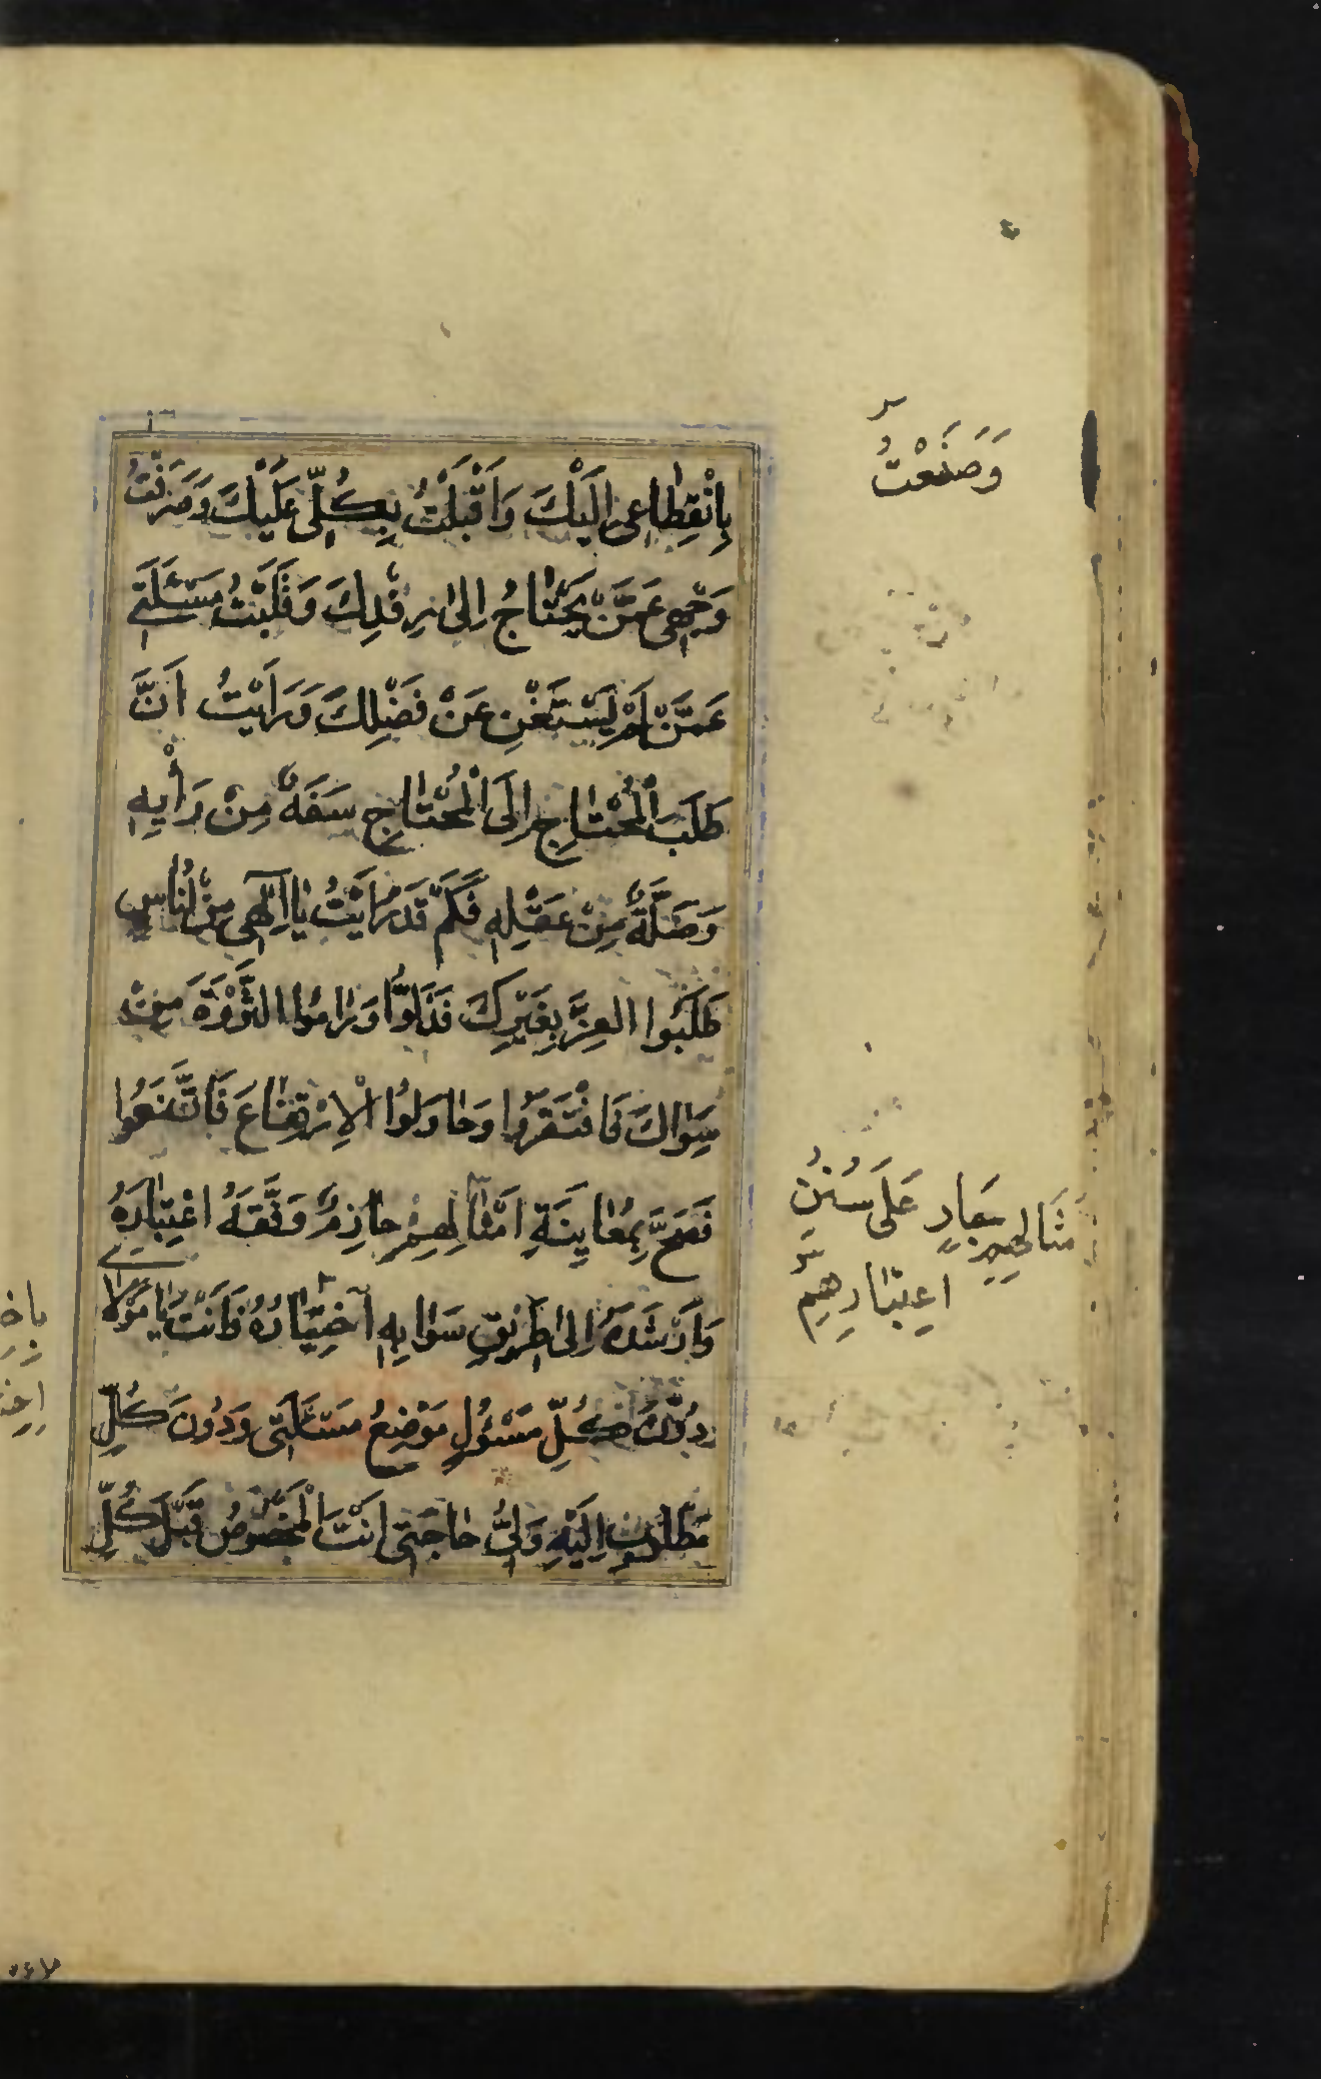 بِانْقِطاعى اِلَيْكَ وَاَقْبَلْتُ بِكُلّى عَلَيْكَ وَصَرَفْتُ
وَجْهى عَمَّنْ يَحْتاجُ اِلى رِفْدِكَ وَقَلَبْتُ مَسْئَلَتى
عَمَّنْ لَمْ يَسْتَغْنِ عَنْ فَضْلِكَ وَرَاَيْتُ اَنَّ
طَلَبَ الْمُحْتاجِ اِلَى الْمُحْتاجِ سَفَهٌ مِنْ رَأْيِهِ
وَضَلَّةٌ مِنْ عَقْلِهِ فَكَمْ قَدْ رَاَيْتُ يا اِلهى مِنْ اُناسٍ
طَلَبُوا العِزَّ بِغَيْرِكَ فَذَلُّوا وَرامُوا الثَّرْوَةَ مِنْ
سِواكَ فَافْتَقَرُوا وَحاوَلُوا الْاِرْتِفاعَ فَاتَّضَعُوا
فَصَحَّ بِمُعايَنَةِ اَمْثالِهِمْ حازِمٌ وَفَّقَهُ اعْتِبارُهُ
وَاَرْشَدَهُ اِلى طَريقِ صَوابِهِ اخْتِيارُهُ فَاَنْتَ يا مَوْلاىَ
دُونَ كُلِّ مَسْئُولٍ مَوْضِعُ مَسْئَلَتى وَدُونَ كُلِّ
مَطْلُوبٍ اِلَيْهِ وَلِىُّ حاجَتى اَنْتَ الْمَخْصُوصُ قَبْلَ كُلِّ
وَصَنَعْتُ
مَثَالِهِمْ عَلَى سُنَنِ
اعِتبَارِهِم